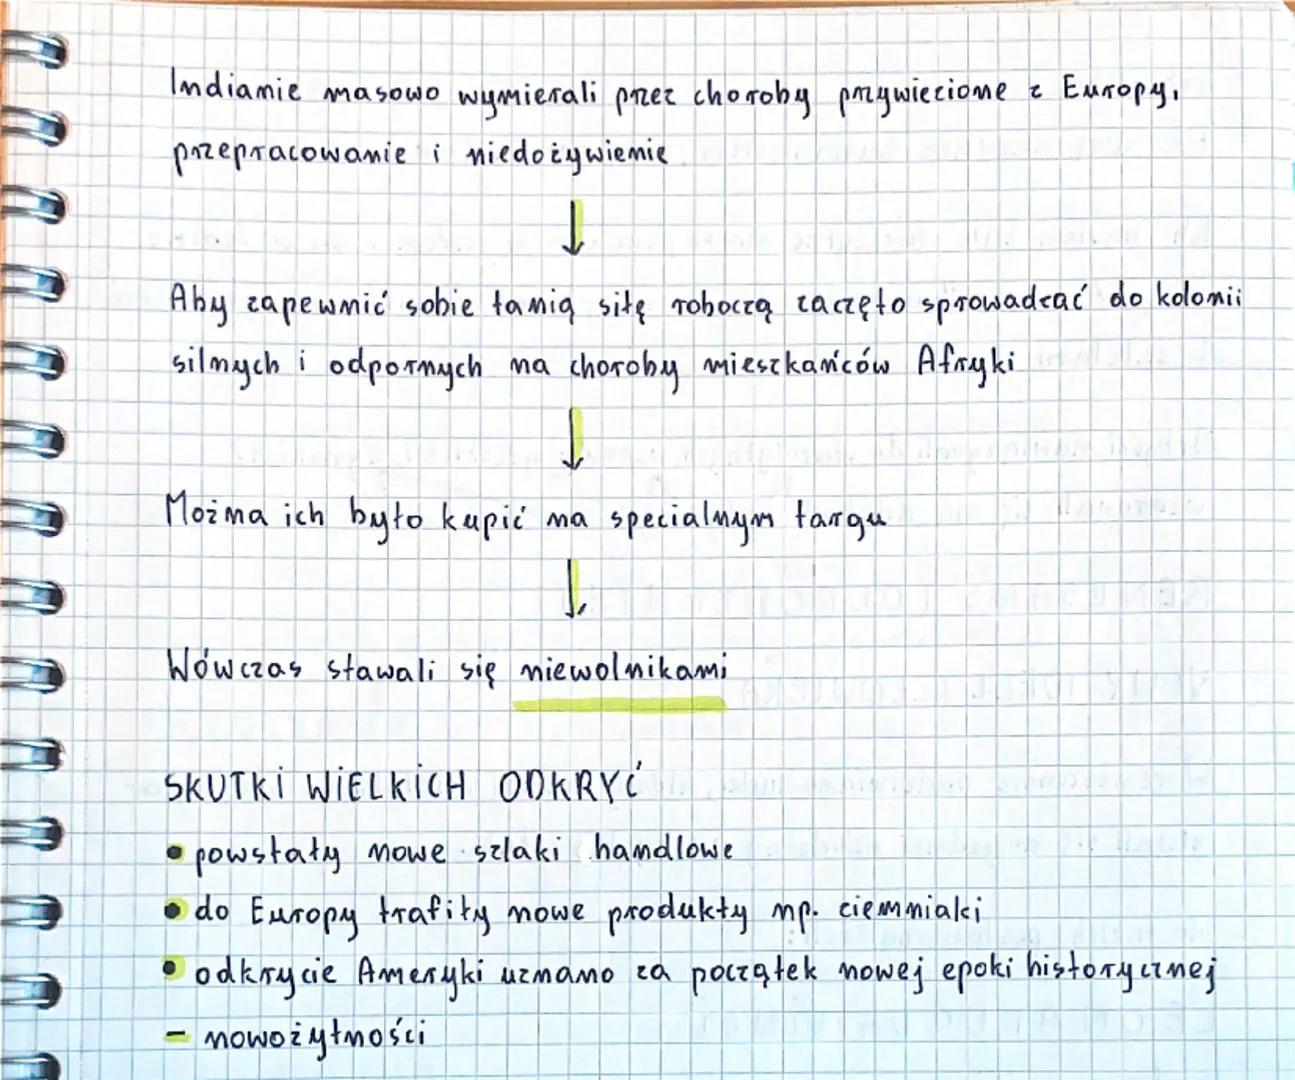 Indianie masowo wymierali przez choroby przywiezione z Europy,
przepracowanie i niedożywienie
↓
Aby zapewnić sobie tanią siłę roboczą zaczęto sprowadzać do kolonii
silnych i odpornych na choroby mieszkańców Afryki
↓
Można ich było kupić na specialnym targu
↓
Wówczas stawali się niewolnikami
SKUTKI WIELKICH ODKRYĆ
• powstały nowe szlaki handlowe
• do Europy trafiły nowe produkty np. ziemniaki
• odkrycie Ameryki uznano za początek nowej epoki historycznej
– nowożytności